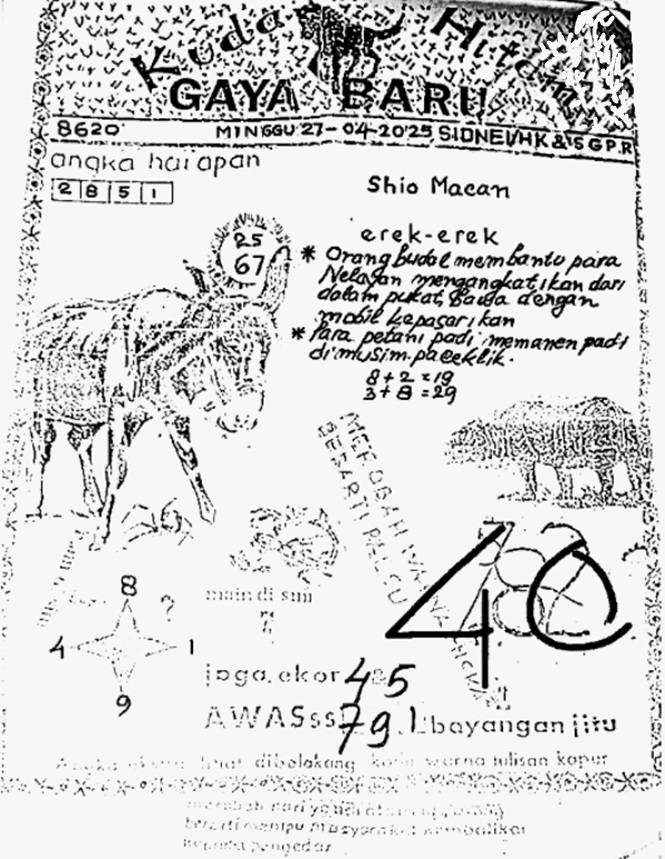 Kuda Hitam
GAYA BARU
8620 MINGGU 27-04-2025 SIDNEI/HK & SGP.R
angka harapan
2 8 5 1
Shio Macan
25
67
erek-erek
* Orang budal membantu para
Nelayan mengangkat ikan dari
dalam pukat, bawa dengan
mobil kepasar ikan
* Para petani padi memanen padi
di musim paceklik.
8+2=19
3+8=29
MEROBAH WARNA ANGKA
BERARTI PALSU
8
4 1
9
?
main di sini
7
jaga ekor 4 & 5
AWASsss 79 ! bayangan jitu
lihat dibelakang kode warna tulisan kapur
merobah
berarti menipu masyarakat kembalikan
kepada pengedar